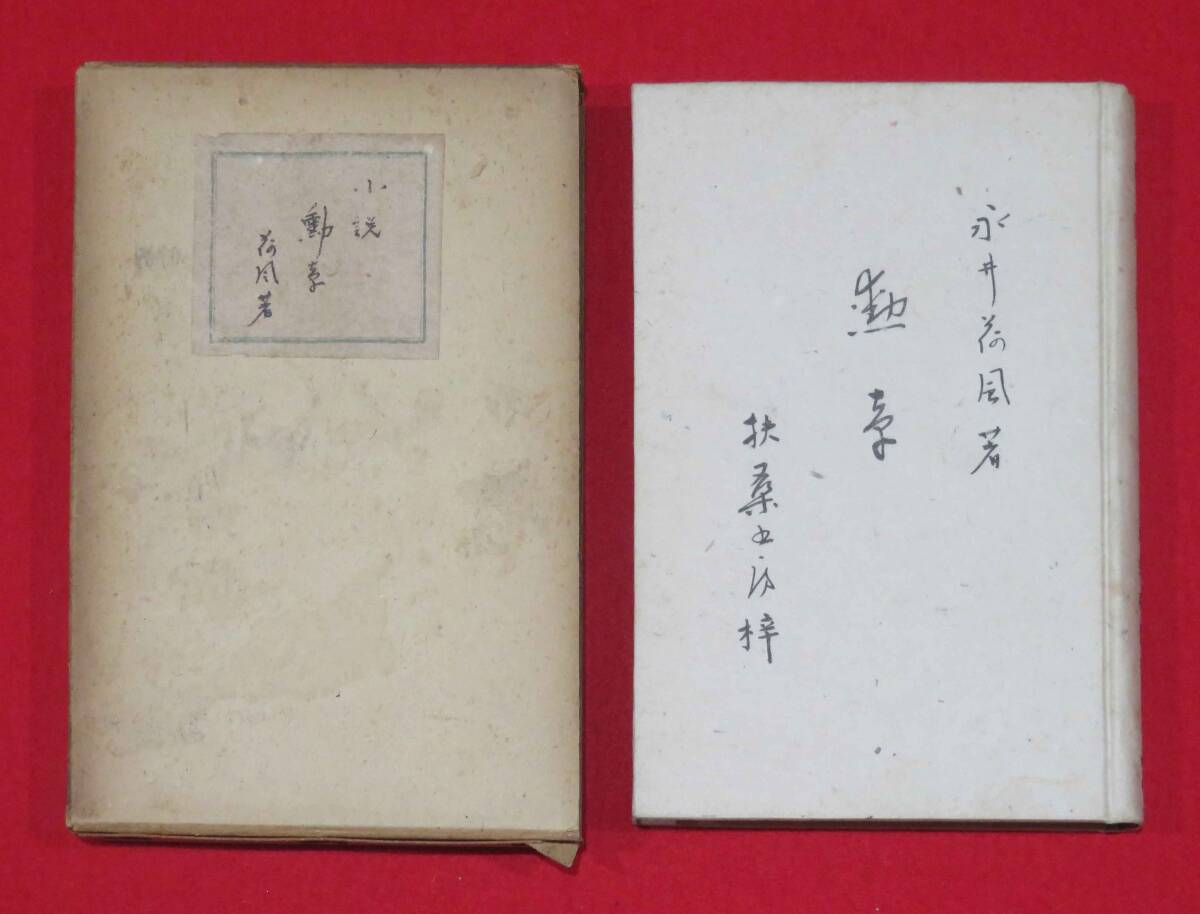 小説
勳章
荷風著
永井荷風著
勲章
扶桑書房梓